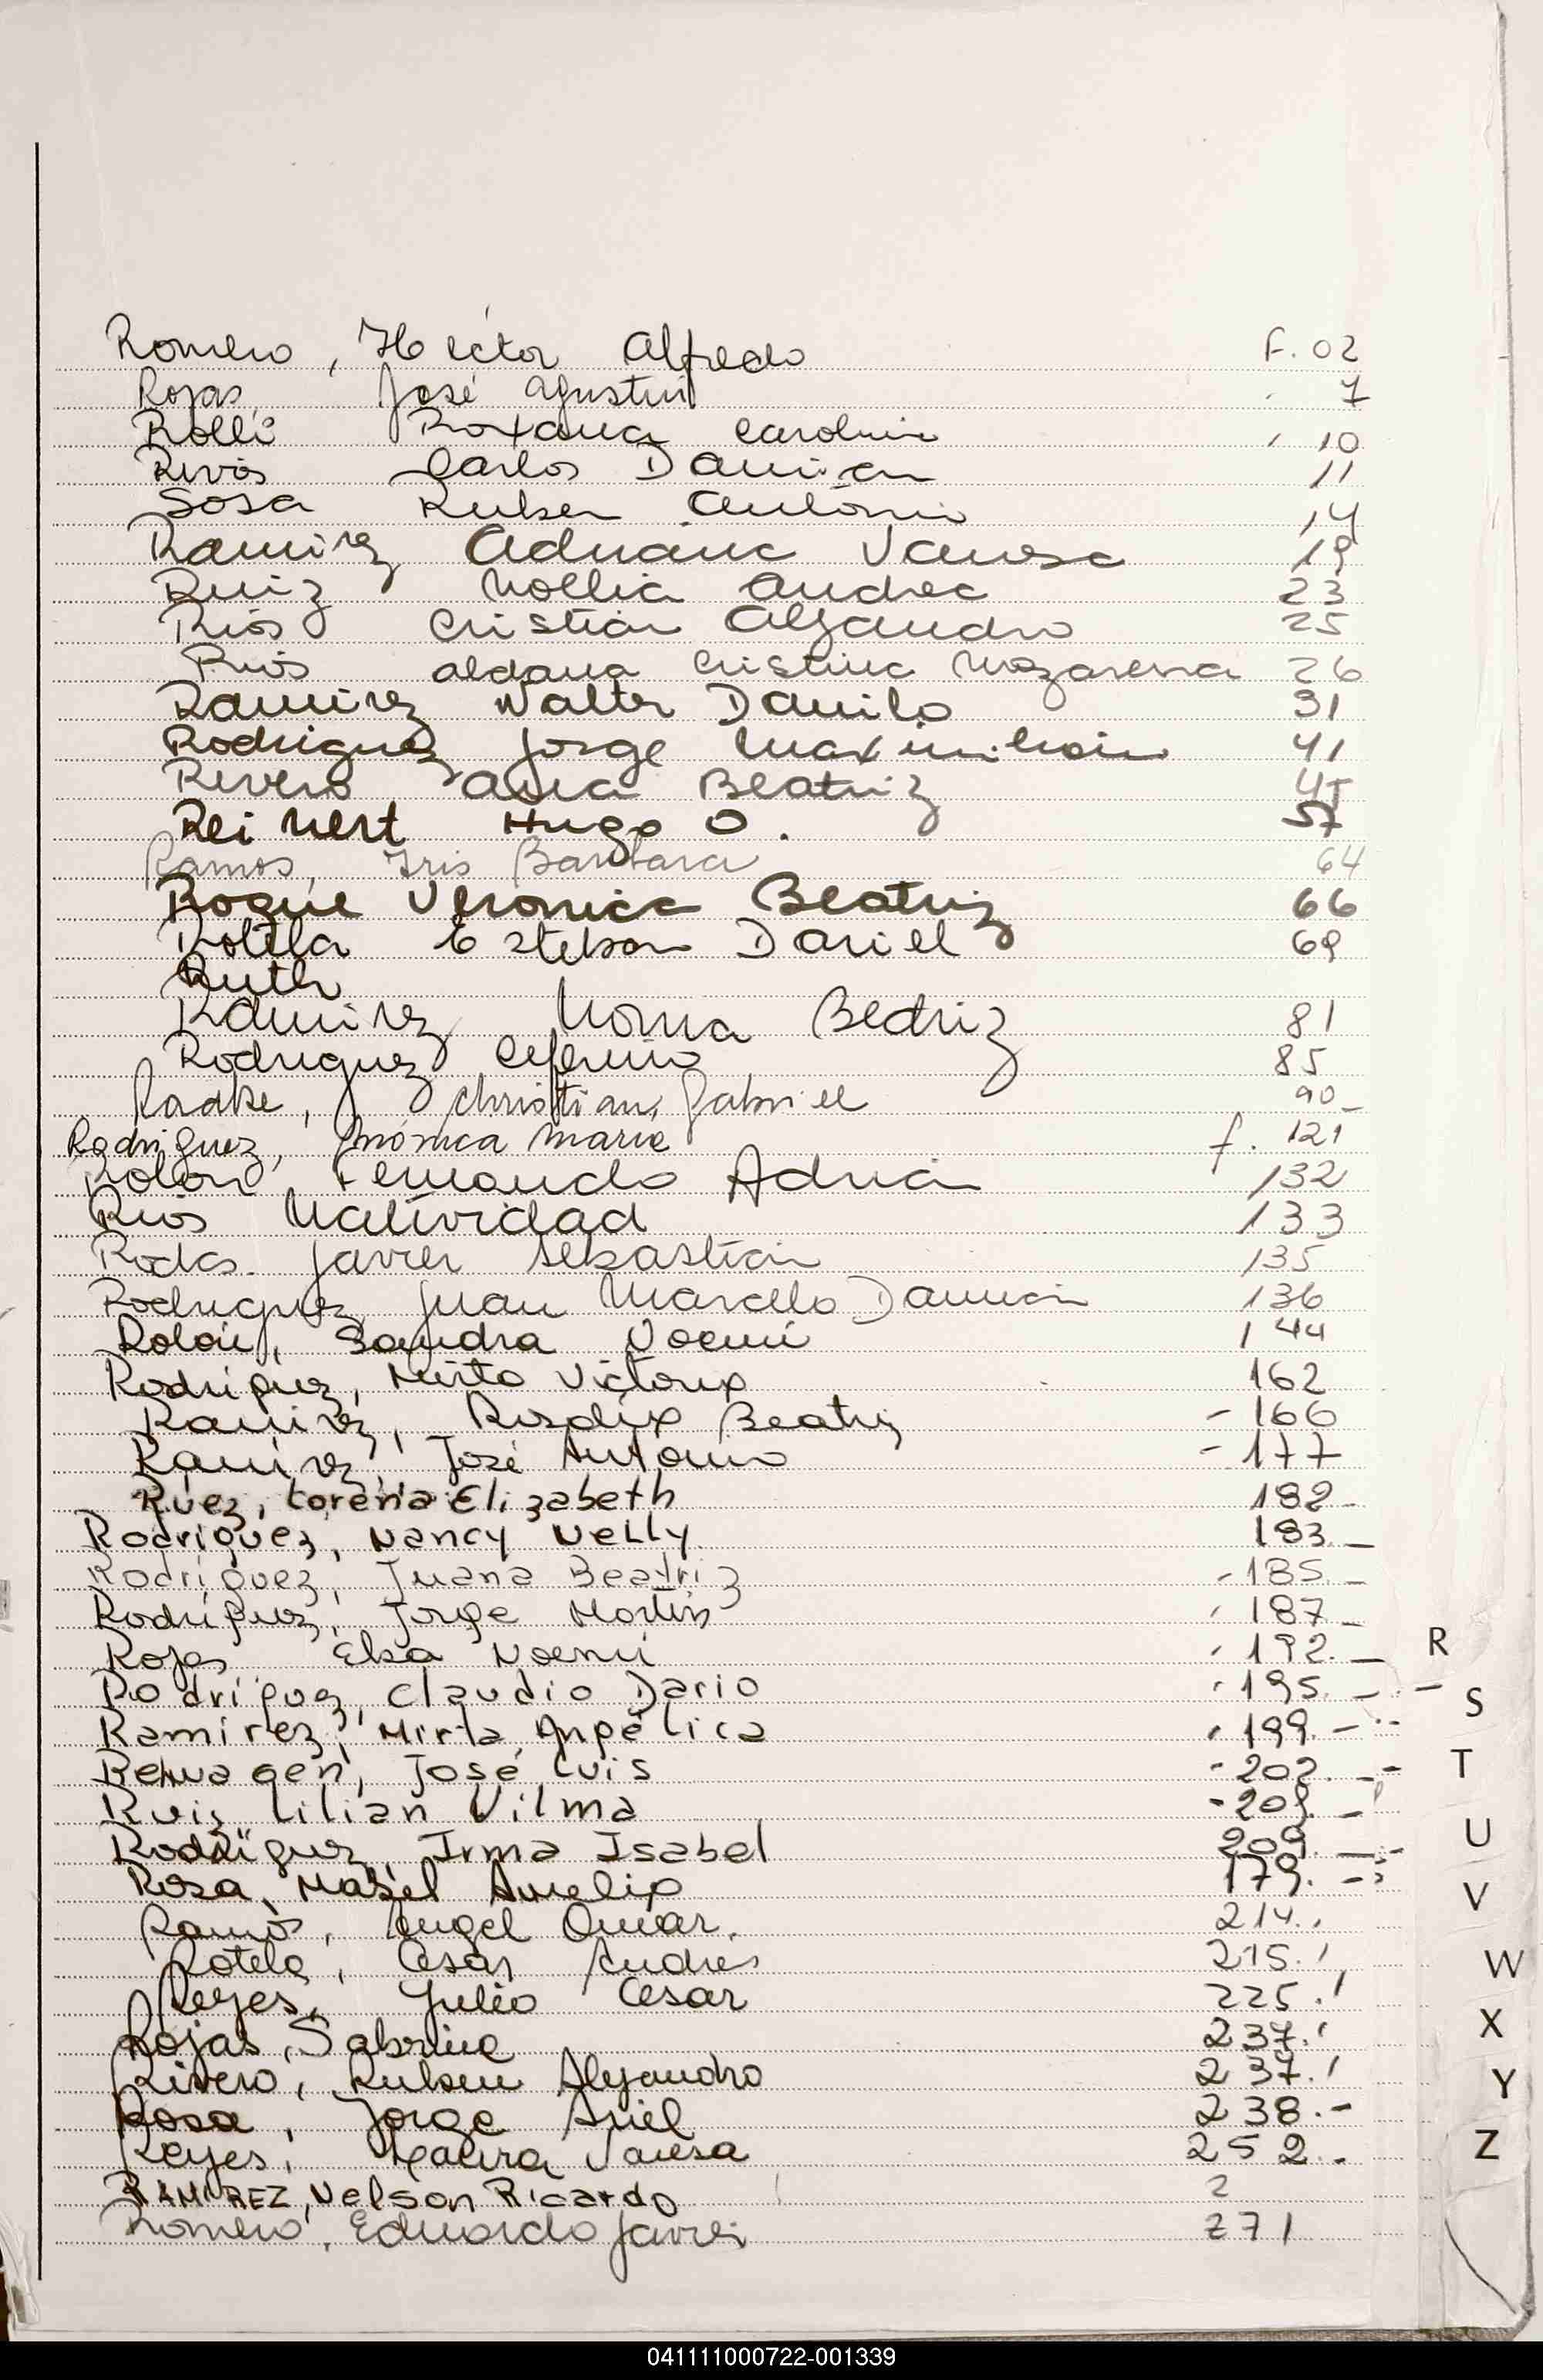 Romero, Héctor Alfredo F. 02
Rojas, José Agustin 7
Rolli Roxana Carolina 10
Rios Carlos Damian 11
Sosa Ruben Antonio 14
Ramirez Adriana Vanesa 19
Ruiz Andrea 23
Rios Cristian Alejandro 25
Rios aldana Cristina Nazarena 26
Ramirez Walter Danilo 31
Rodriguez Jorge Maximiliano 41
Rivero Beatriz 45
Reinert Hugo O. 57
Ramos, Iris Barbara 64
Roque Veronica Beatriz 66
Rotela Esteban Daniel 69
Ruth
Ramirez Norma Beatriz 81
Rodriguez Ceferino 85
Radke, Christian Gabriel 90
Rodriguez, Mónica Maria f. 121
Rolon Fernando Adrian 132
Rios Natividad 133
Rodas Javier Sebastián 135
Rodriguez Juan Marcelo Damian 136
Rolon, Sandra Noemi 144
Rodriguez, Mirta Victoria 162
Ramirez, Rosalia Beatriz - 166
Ramirez, José Antonio - 177
Ruez, Lorena Elizabeth 182
Rodriguez, Nancy Nelly 183.-
Rodriguez, Juana Beatriz - 185.-
Rodriguez, Jorge Martin 187-
Rojas Elsa Noemi 192.-
Rodriguez, Claudio Dario 195.-
Ramirez, Mirta Angélica 199.-
José Luis - 202.-
Ruiz Lilian Vilma
Rodriguez, Irma Isabel 209.-
Rosa, Mabel Amelia 179.-
Ramos, Angel Omar. 214.
Rotela, Cesar Andres 215.
Reyes, Julio Cesar 225.
Rojas, Sabrina 237.
Rivero, Ruben Alejandro 237.
Rosa, Jorge Ariel 238.-
Reyes, Laura Vanesa 252.
RAMIREZ, Nelson Ricardo 2
Romero, Eduardo Javier 271
R
S
T
U
V
W
X
Y
Z
041111000722-001339